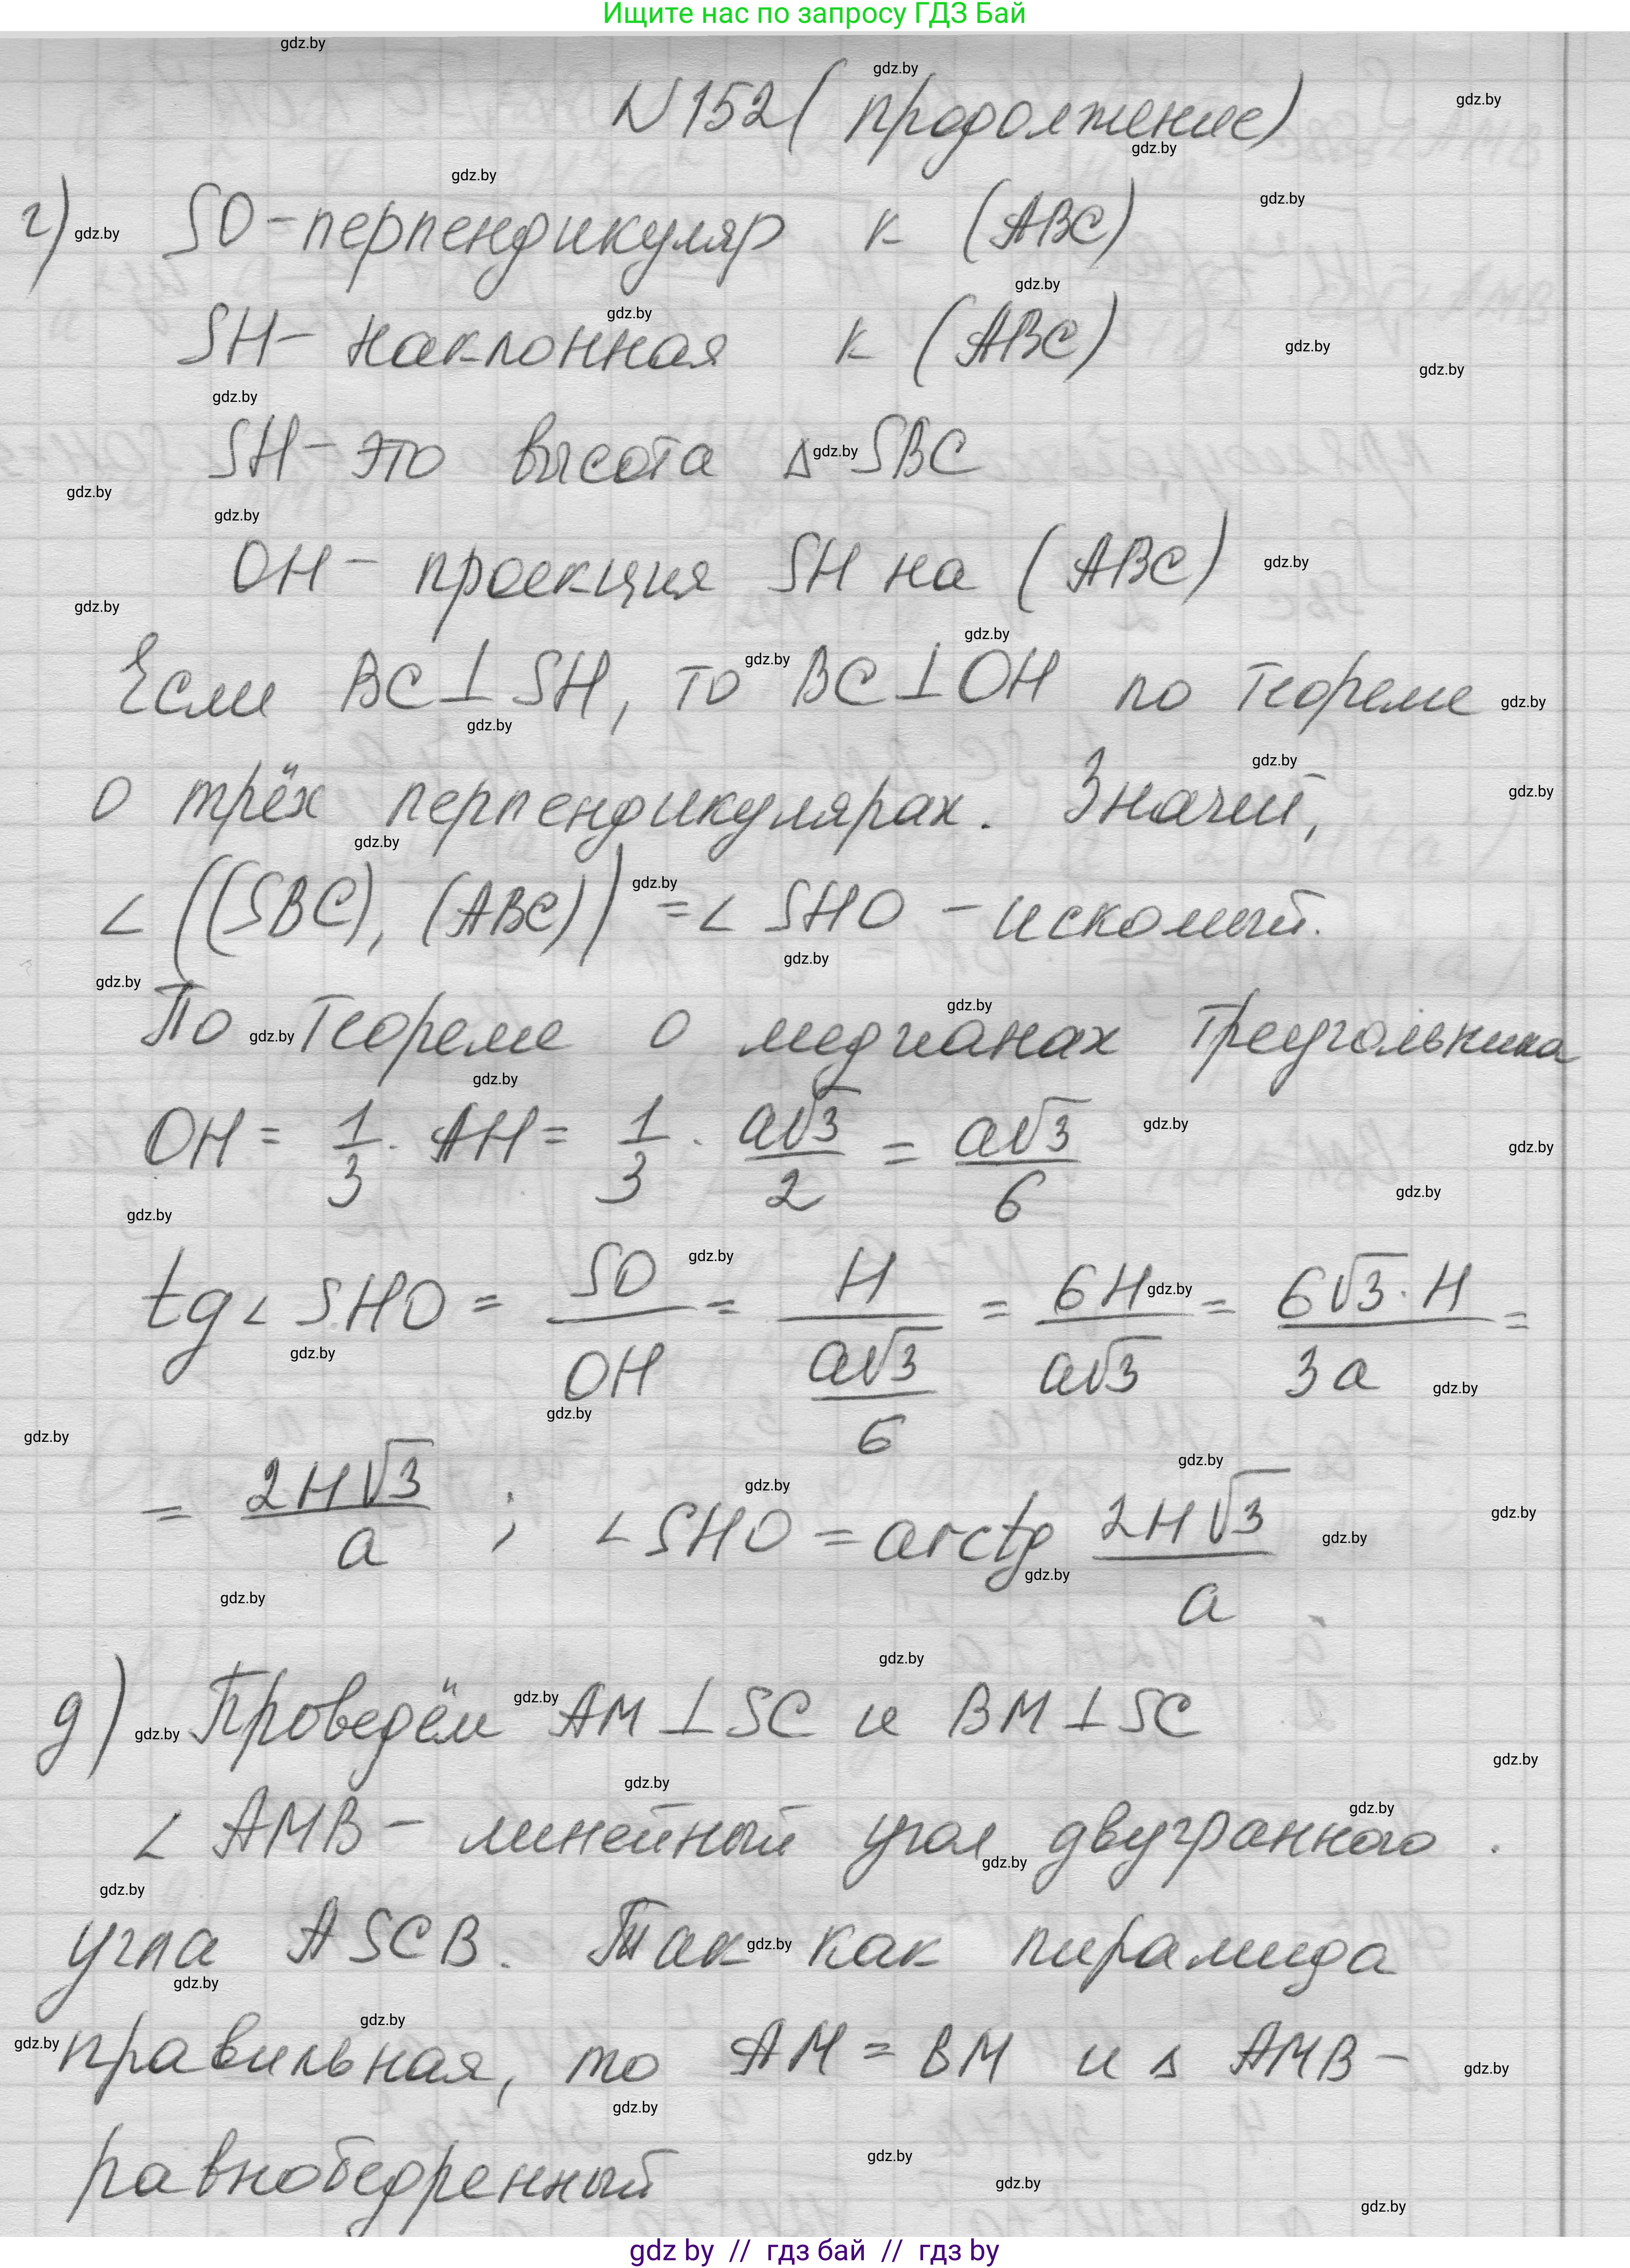 Ищите нас по запросу ГДЗ Бай
N152 (продолжение)
г) SO-перпендикуляр к (ABC)
SH- наклонная к (ABC)
SH- это высота ∆ SBC
OH- проекция SH на (ABC)
Если BC⊥SH, то BC⊥OH по теореме
о трёх перпендикулярах. Значит,
∠((SBC), (ABC)) = ∠ SHO - искомый.
По теореме о медианах треугольника
OH = 1/3 · AH = 1/3 · a√3/2 = a√3/6
tg∠ SHO = SO/OH = H/(a√3/6) = 6H/a√3 = 6√3·H/3a =
= 2H√3/a ; ∠SHO = arctg 2H√3/a.
д) Проведём AM⊥SC и BM⊥SC
∠ AMB - линейный угол двугранного.
угла ASCB. Так как пирамида
правильная, то AM = BM и ∆ AMB -
равнобедренный
gdz by // гдз бай // gdz by